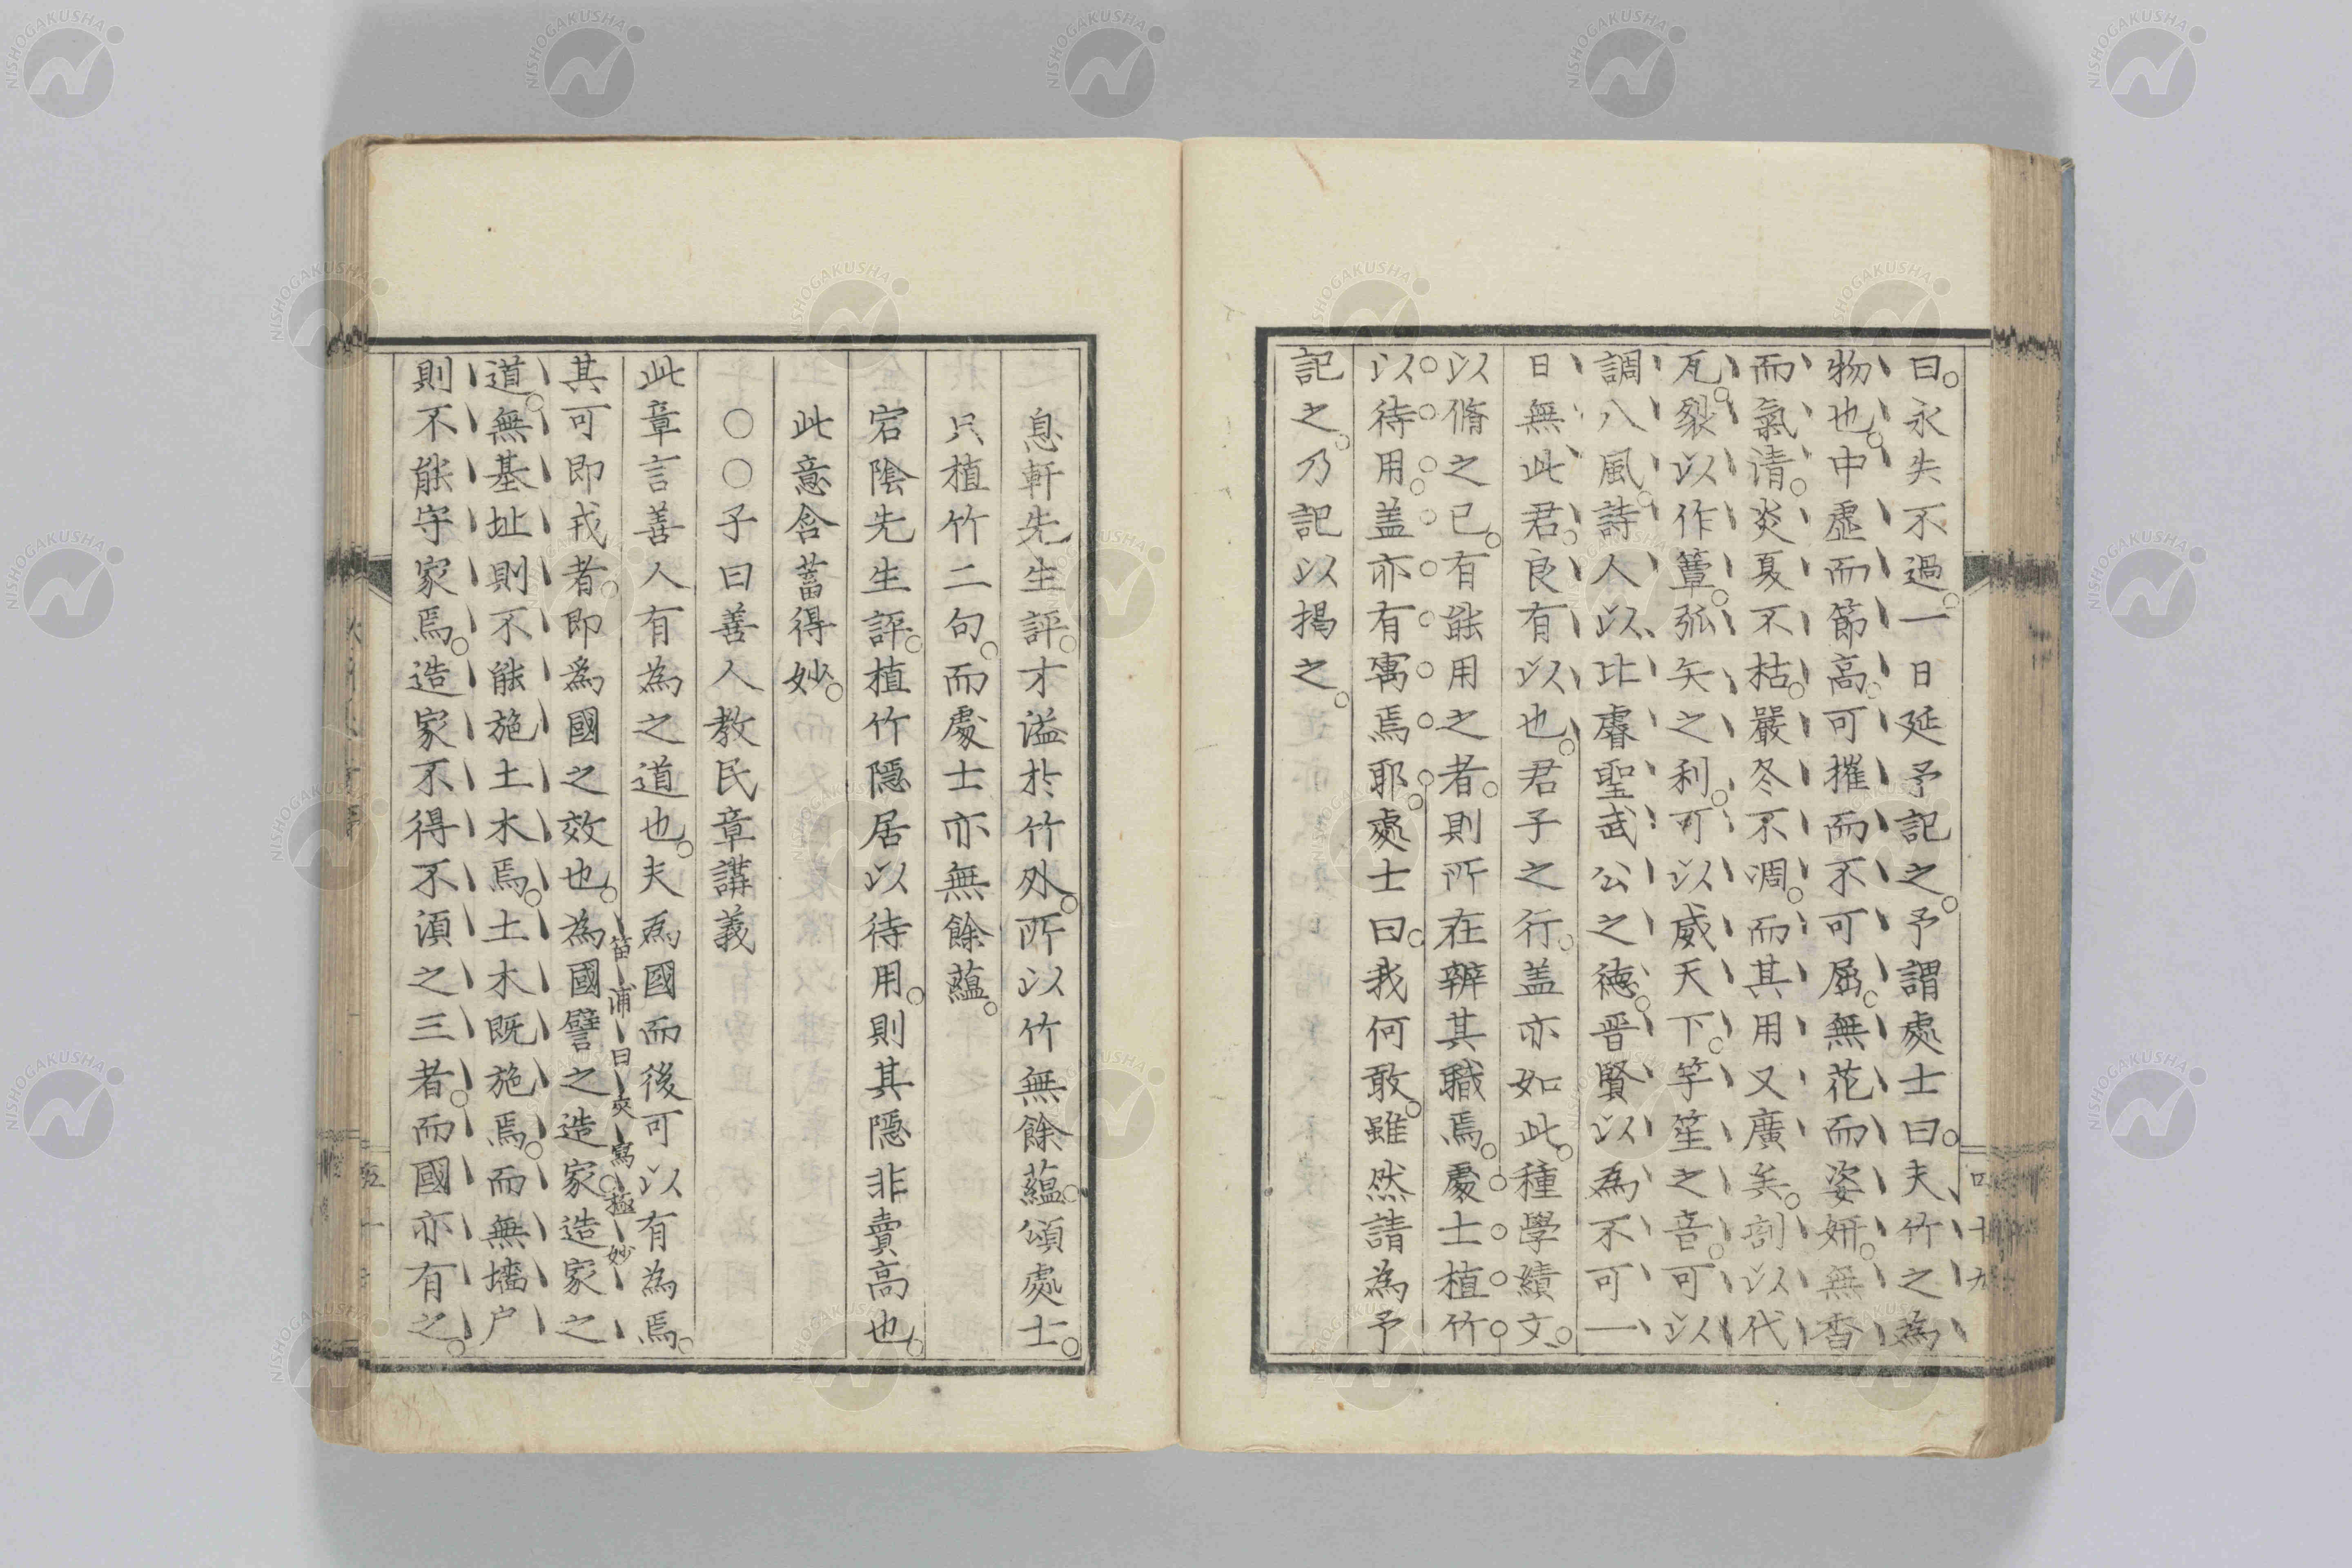 曰。永失不過。一日延予記之。予謂處士曰。夫竹之為
物也。中虛而節高。可摧而不可屈。無花而姿妍。無香
而氣清。炎夏不枯。嚴冬不凋。而其用又廣矣。割以代
瓦。裂以作簟。弧矢之利。可以威天下。竽笙之音。可以
調八風。詩人以比睿聖武公之德。晋賢以為不可一
日無此君。良有以也。君子之行。盖亦如此。種學績文。
以脩之已。有能用之者。則所在辨其職焉。處士植竹
以待用。盖亦有寓焉耶。處士曰。我何敢。雖然請為予
記之。乃記以揭之。
四十九
息軒先生評。才溢於竹外。所以竹無餘蘊。頌處士。
只植竹二句。而處士亦無餘蘊。
宕陰先生評。植竹隱居以待用。則其隱非賣高也。
此意含蓄得妙。
○○子曰善人教民章講義
此章言善人有為之道也。夫為國而後可以有為焉。
其可即戎者。即為國之效也。為國譬之造家。造家之
笛浦曰夾寫極妙
道。無基址則不能施土木焉。土木既施焉。而無墻户
則不能守家焉。造家不得不湏之三者。而國亦有之。
五十
NISHOGAKUSHA